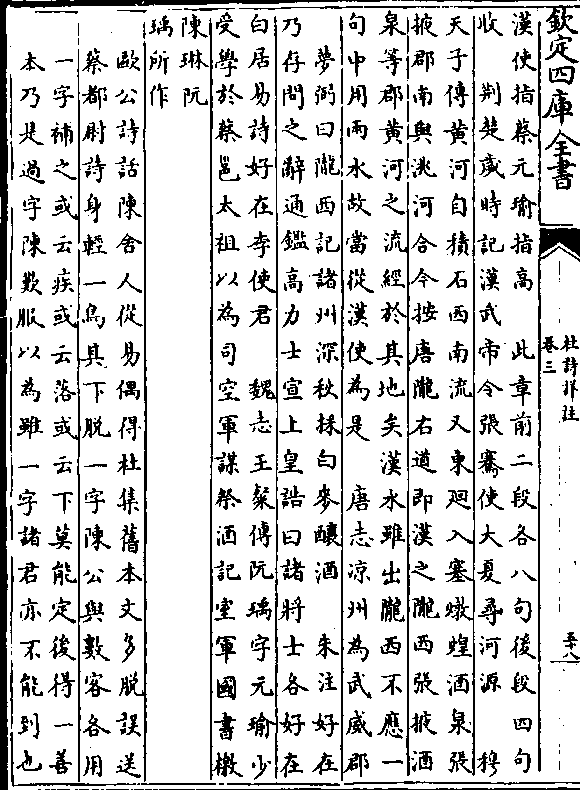 欽定四庫全書
杜詩詳註
卷三
五十八
漢使指蔡元瑜指高　此章前二段各八句後段四句
收　荆楚歲時記漢武帝令張騫使大夏尋河源　穆
天子傳黄河自積石西南流又東迴入塞燉煌酒泉張
掖郡南與洮河合今按唐隴右道即漢之隴西張掖酒
泉等郡黄河之流經於其地矣漢水雖出隴西不應一
句中用兩水故當從漢使為是　唐志凉州為武威郡
夢弼曰隴西記諸州深秋採白麥釀酒　朱注好在
乃存問之辭通鑑高力士宣上皇誥曰諸將士各好在
白居易詩好在李使君　魏志王粲傳阮瑀字元瑜少
受學於蔡邕太祖以為司空軍謀祭酒記室軍國書檄
陳琳阮
瑀所作
歐公詩話陳舍人從易偶得杜集舊本文多脱誤送
蔡都尉詩身輕一鳥其下脱一字陳公與數客各用
一字補之或云疾或云落或云下莫能定後得一善
本乃是過字陳歎服以為雖一字諸君亦不能到也